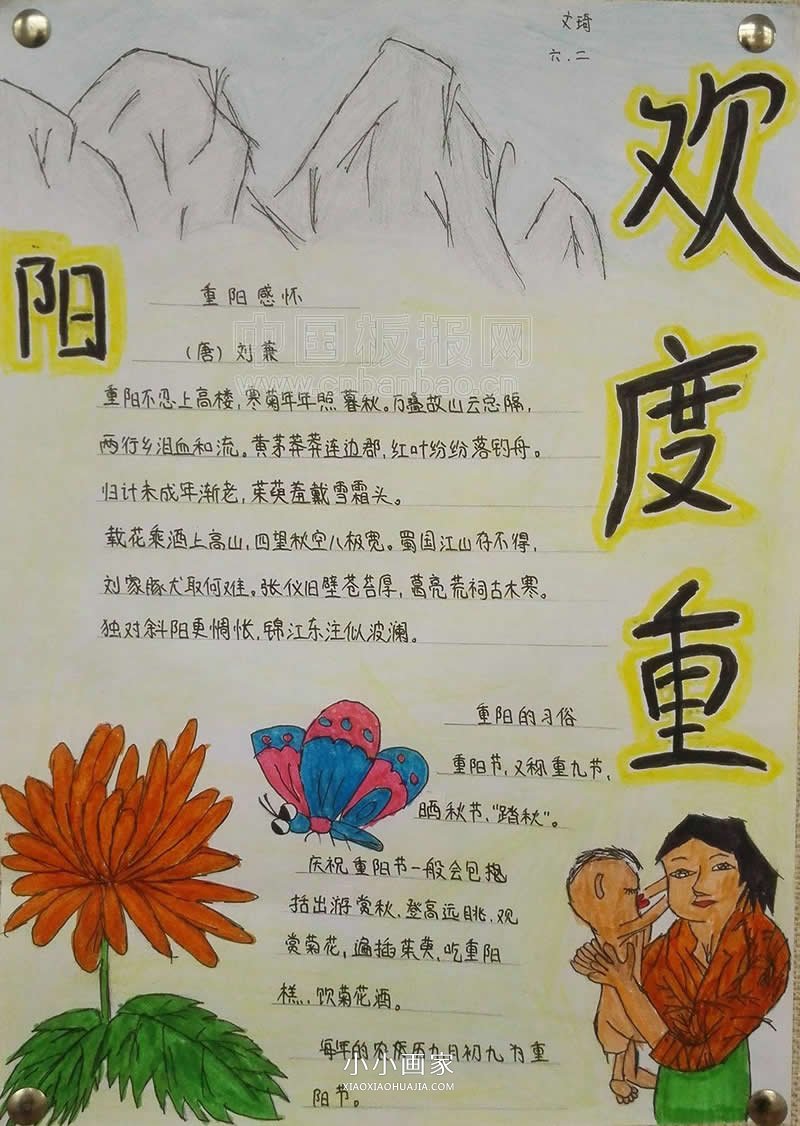 文琦
六.二
欢
度
重
阳
重阳感怀
(唐) 刘兼
中国板报网
www.cnbanbao.cn
重阳不忍上高楼,寒菊年年照暮秋。万叠故山云总隔,
两行乡泪血和流。黄茅莽莽连边郡,红叶纷纷落钓舟。
归计未成年渐老,茱萸羞戴雪霜头。
载花乘酒上高山,四望秋空八极宽。蜀国江山存不得,
刘家豚犬取何难。张仪旧壁苍苔厚,葛亮荒祠古木寒。
独对斜阳更惆怅,锦江东注似波澜。
重阳的习俗
重阳节,又称重九节,
晒秋节,"踏秋"。
庆祝重阳节一般会包抱
括出游赏秋,登高远眺,观
赏菊花,遍插茱萸,吃重阳
糕,饮菊花酒。
每年的农历九月初九为重
阳节。
小小画家
XIAOXIAOHUAJIA.COM